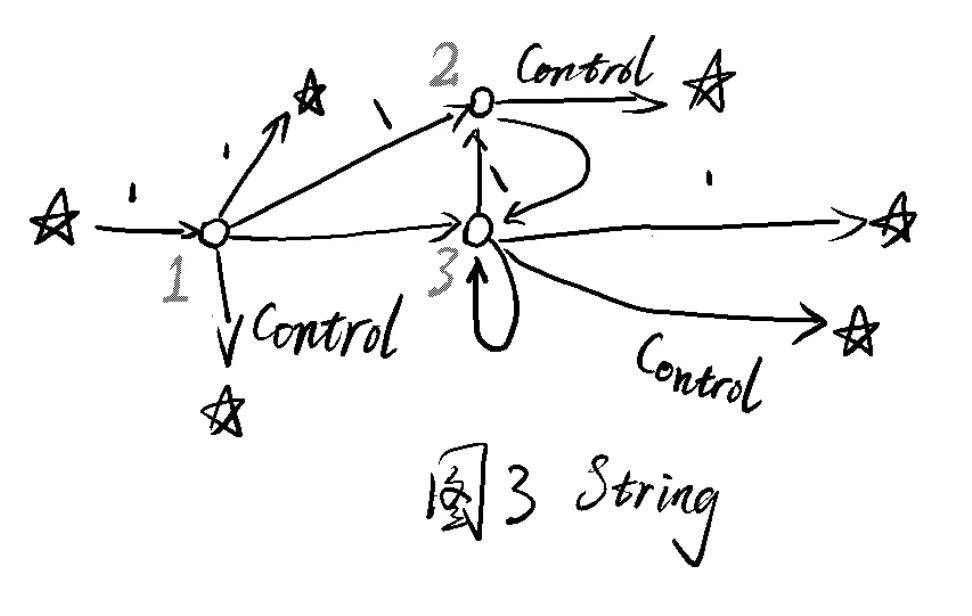 2
Control
'
\
'
'
\
'
1
3
Control
Control
图3 String